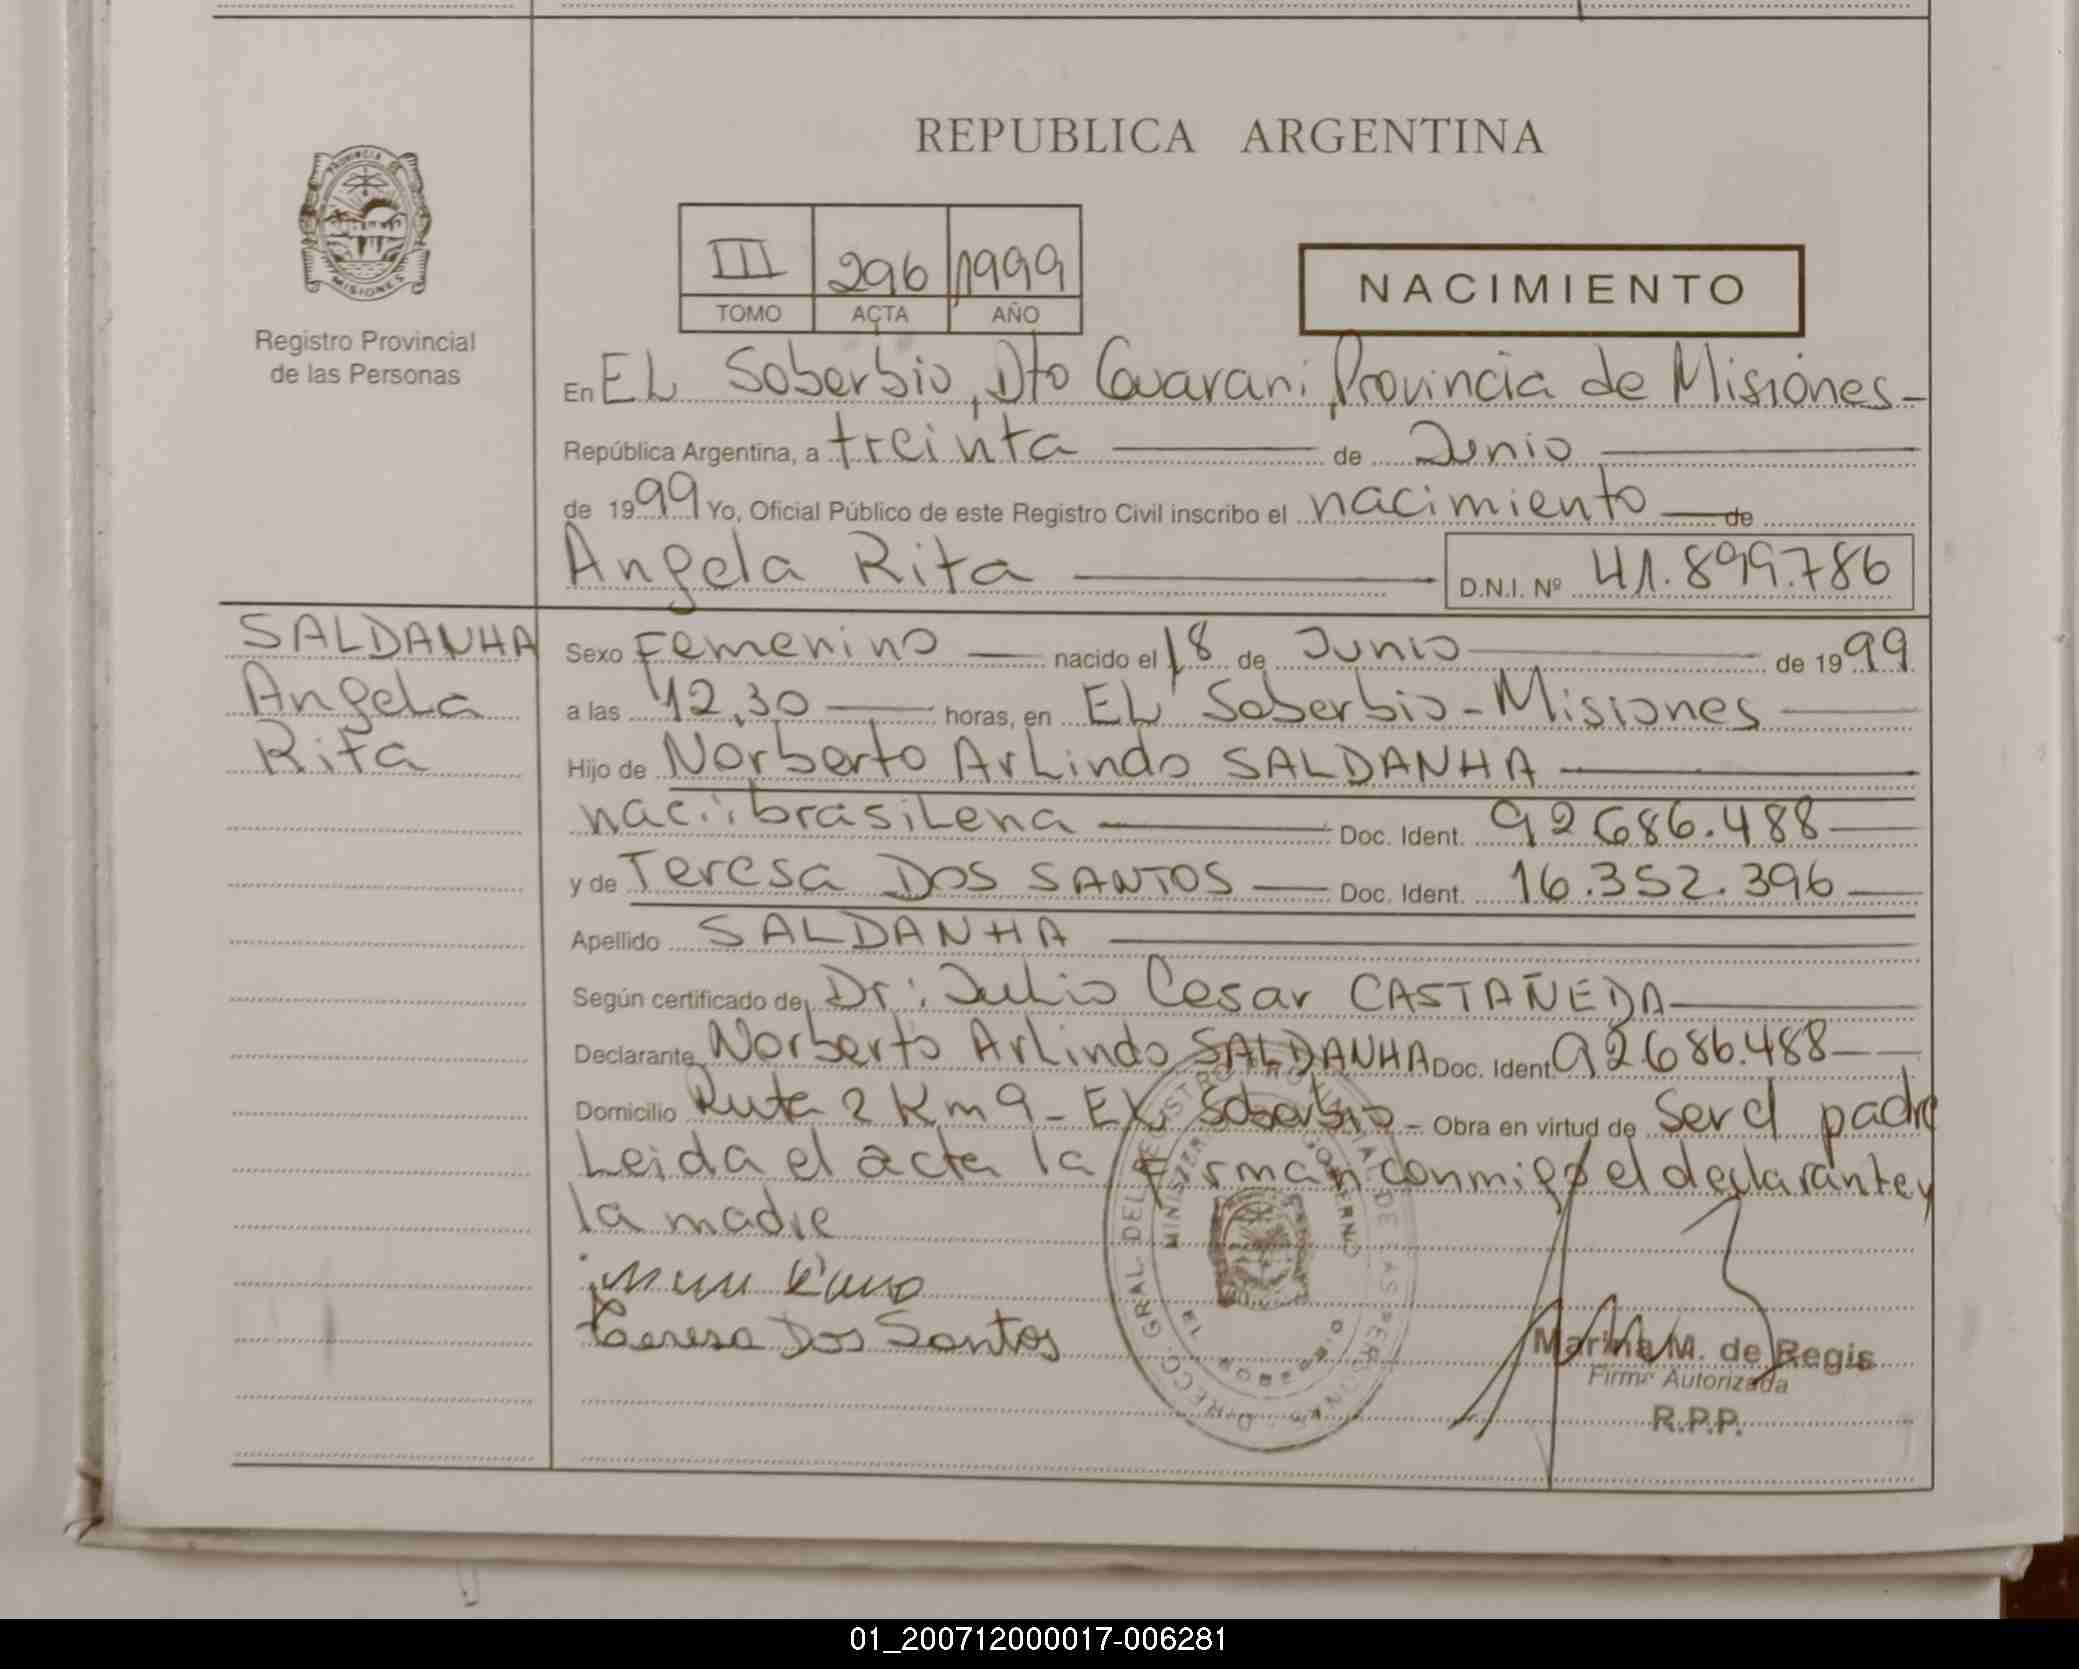 REPUBLICA ARGENTINA
PROVINCIA DE
MISIONES
Registro Provincial
de las Personas
III 296 1999
TOMO ACTA AÑO
NACIMIENTO
En EL Soberbio, Dto Guarani, Provincia de Misiones-
República Argentina, a treinta de Junio
de 1999 Yo, Oficial Público de este Registro Civil inscribo el nacimiento de
Angela Rita D.N.I. Nº 41.899.786
SALDANHA
Angela
Rita
Sexo Femenino nacido el 18 de Junio de 1999
a las 12,30 horas, en EL Soberbio-Misiones
Hijo de Norberto ArLindo SALDANHA
nac:: brasiLena Doc. Ident. 92686.488
y de Teresa DOS SANTOS Doc. Ident. 16.352.396
Apellido SALDANHA
Según certificado de Dr: Julio Cesar CASTAÑEDA
Declarante Norberto ArLindo SALDANHA Doc. Ident. 92686.488
Domicilio Ruta 2 Km 9-EL Soberbio- Obra en virtud de Ser el padre
Leida el acta la firman conmigo el declarante y
la madre
Teresa Dos Santos
Marina M. de Regis
Firma Autorizada
R.P.P.
01_200712000017-006281